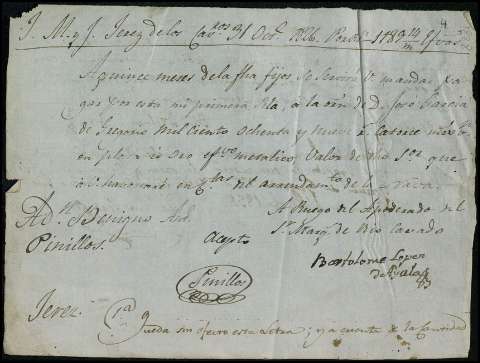 J. M. y J. Jerez de los Cav.ros 31 Oct.e 1826. Por Rv.n 1189 14 m Efvos
A quince meses de la fha fijos se servirá V. mandar pa-
gar por esta mi primera de la, a la orn. de D. Jose Garcia
de Gregorio mil ciento ochenta y nueve r. catorce mrs.
en plata u oro ef.vo metalico Valor de dho S.or que
en del arrendam.to de
Ad.n Benigno
A Ruego del Apoderado del
Pinillos.
Acepto
S.r Marq. de Rio Cavado
Bartolome Lopez
de Ayala
Pinillos
Jerez. 1.a
Queda sin efecto esta Letra y a cuenta de la cantidad